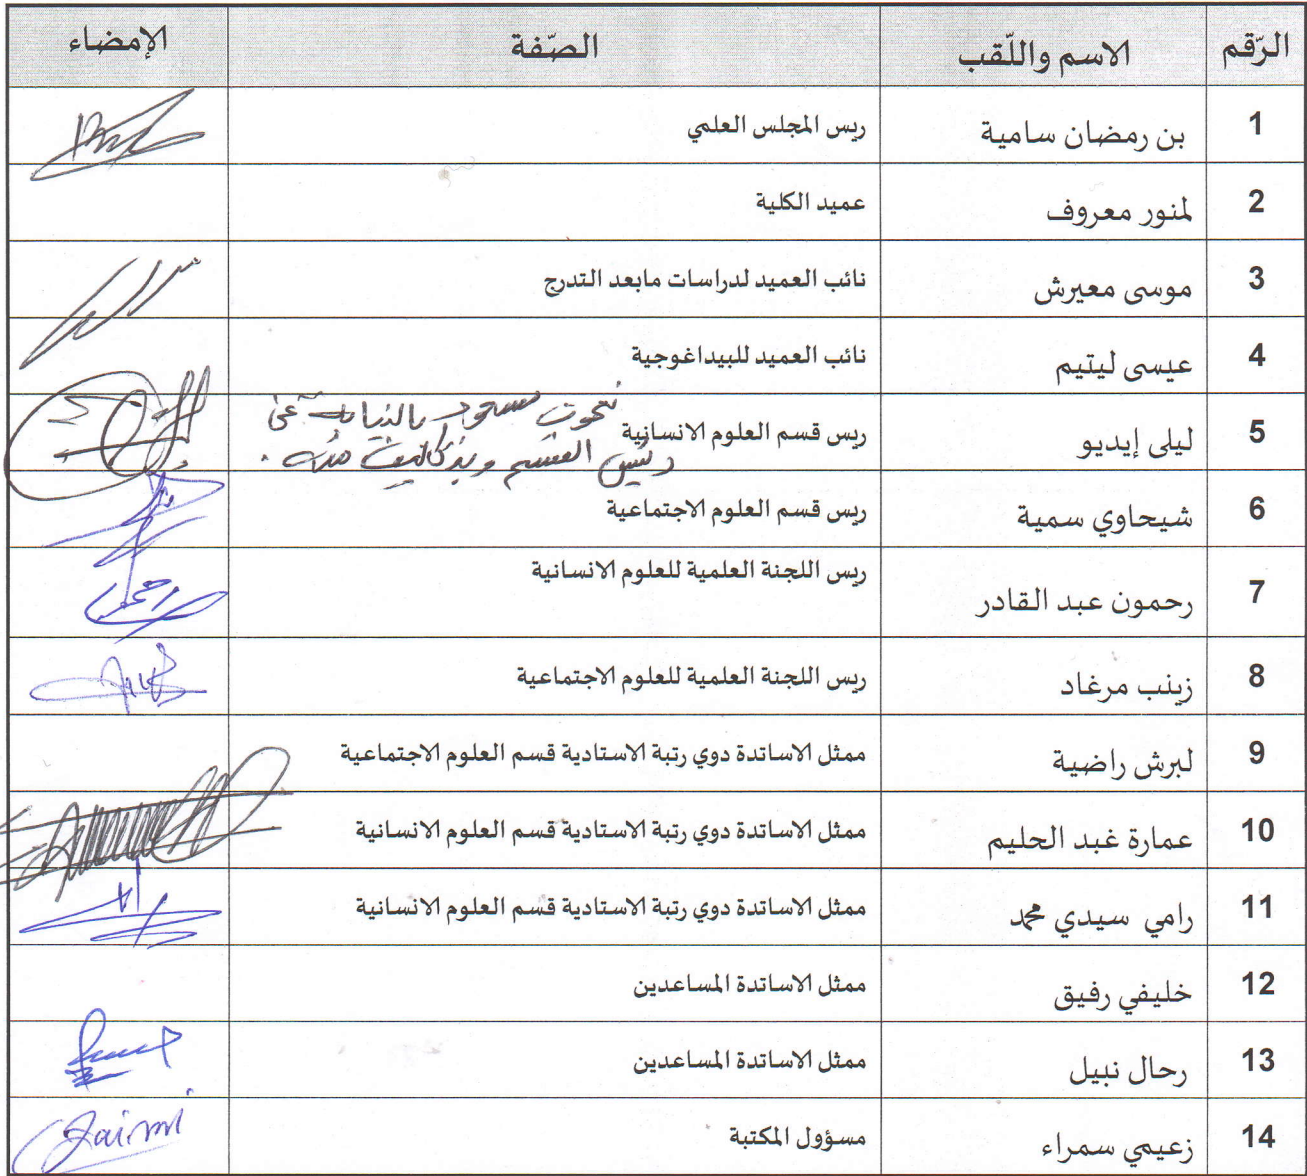 الرّقم الاسم واللّقب الصّفة الإمضاء
1 بن رمضان سامية ريس المجلس العلمي
2 لمنور معروف عميد الكلية
3 موسى معيرش نائب العميد لدراسات مابعد التدرج
4 عيسى ليتيم نائب العميد للبيداغوجية
5 ليلى إيديو ريس قسم العلوم الانسانية
مسعود بالنيابة عن
رئيس القسم منه.
6 شيحاوي سمية ريس قسم العلوم الاجتماعية
7 رحمون عبد القادر ريس اللجنة العلمية للعلوم الانسانية
8 زينب مرغاد ريس اللجنة العلمية للعلوم الاجتماعية
9 لبرش راضية ممثل الاساتدة دوي رتبة الاستادية قسم العلوم الاجتماعية
10 عمارة غبد الحليم ممثل الاساتدة دوي رتبة الاستادية قسم العلوم الانسانية
11 رامي سيدي محمد ممثل الاساتدة دوي رتبة الاستادية قسم العلوم الانسانية
12 خليفي رفيق ممثل الاساتدة المساعدين
13 رحال نبيل ممثل الاساتدة المساعدين
14 زعيمي سمراء مسؤول المكتبة Zaimi